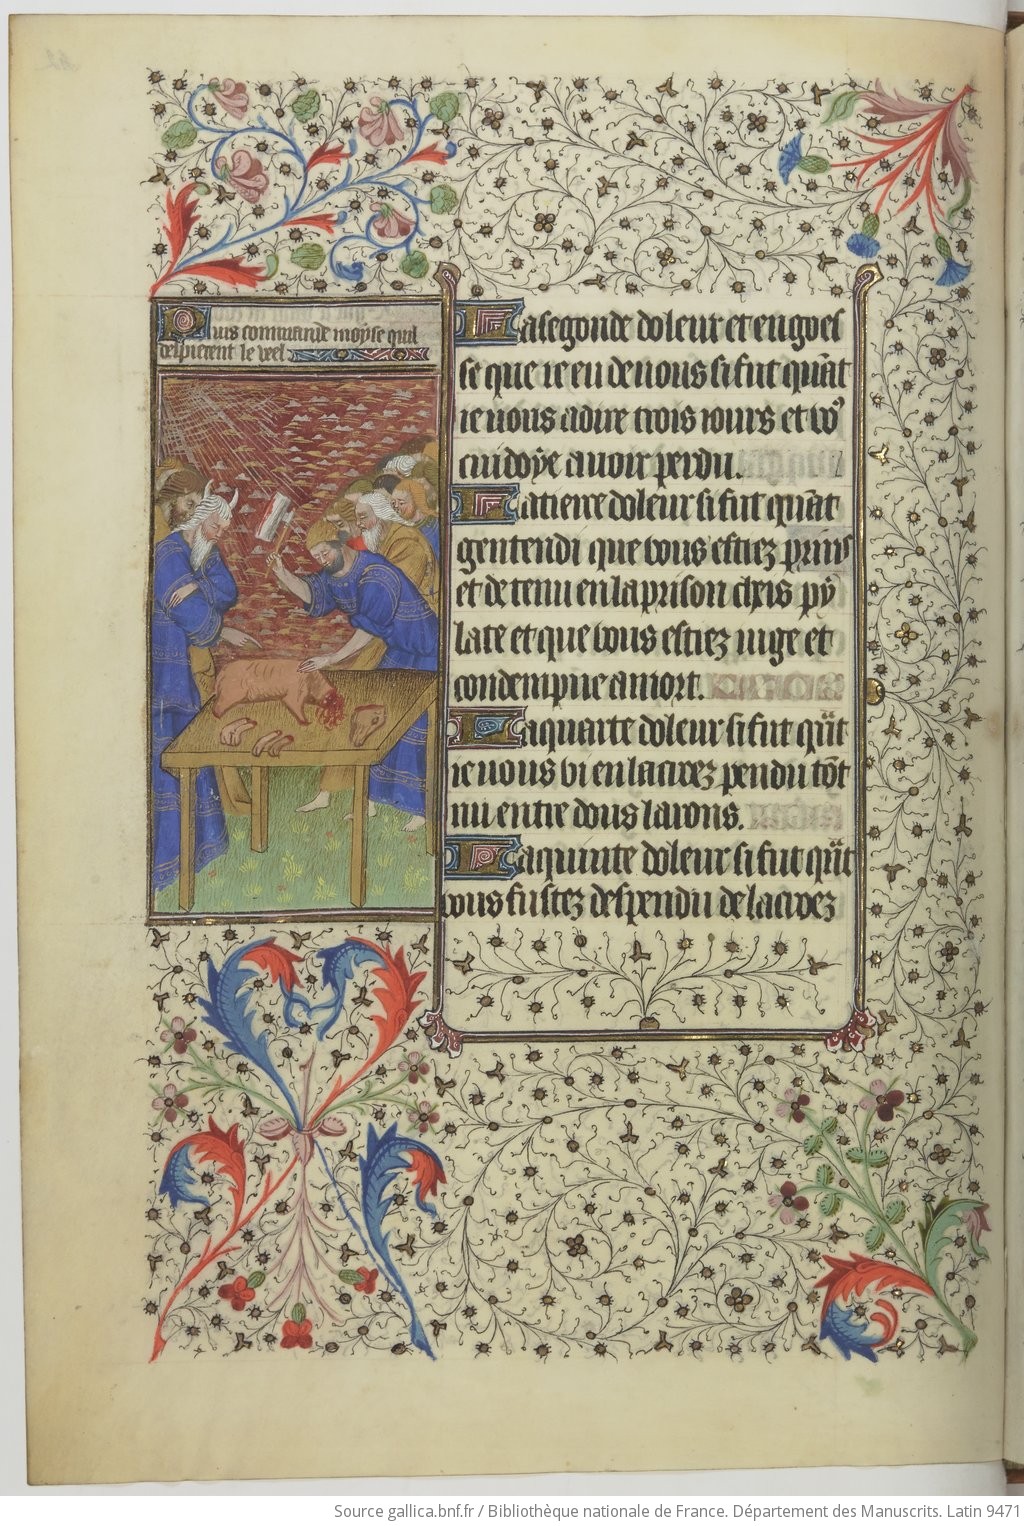 Puis commande moyse quil
despiecent le veel
La segonde doleur et engoes
se que ie eu de vous si fut quāt
ie vous adire trois iours et vo9
cuidoye auoir perdu.
La tierce doleur si fut quāt
gentendi que vous estiez prins
et detenu en la prison cheis py
late et que vous estiez iuge et
condempne a mort.
La quarte doleur si fut qūt
ie vous vi en la croez pendu tōt
nu entre dous larons.
La quinte doleur si fut qūt
vous fustez despendu de la croez
Source gallica.bnf.fr / Bibliothèque nationale de France. Département des Manuscrits. Latin 9471